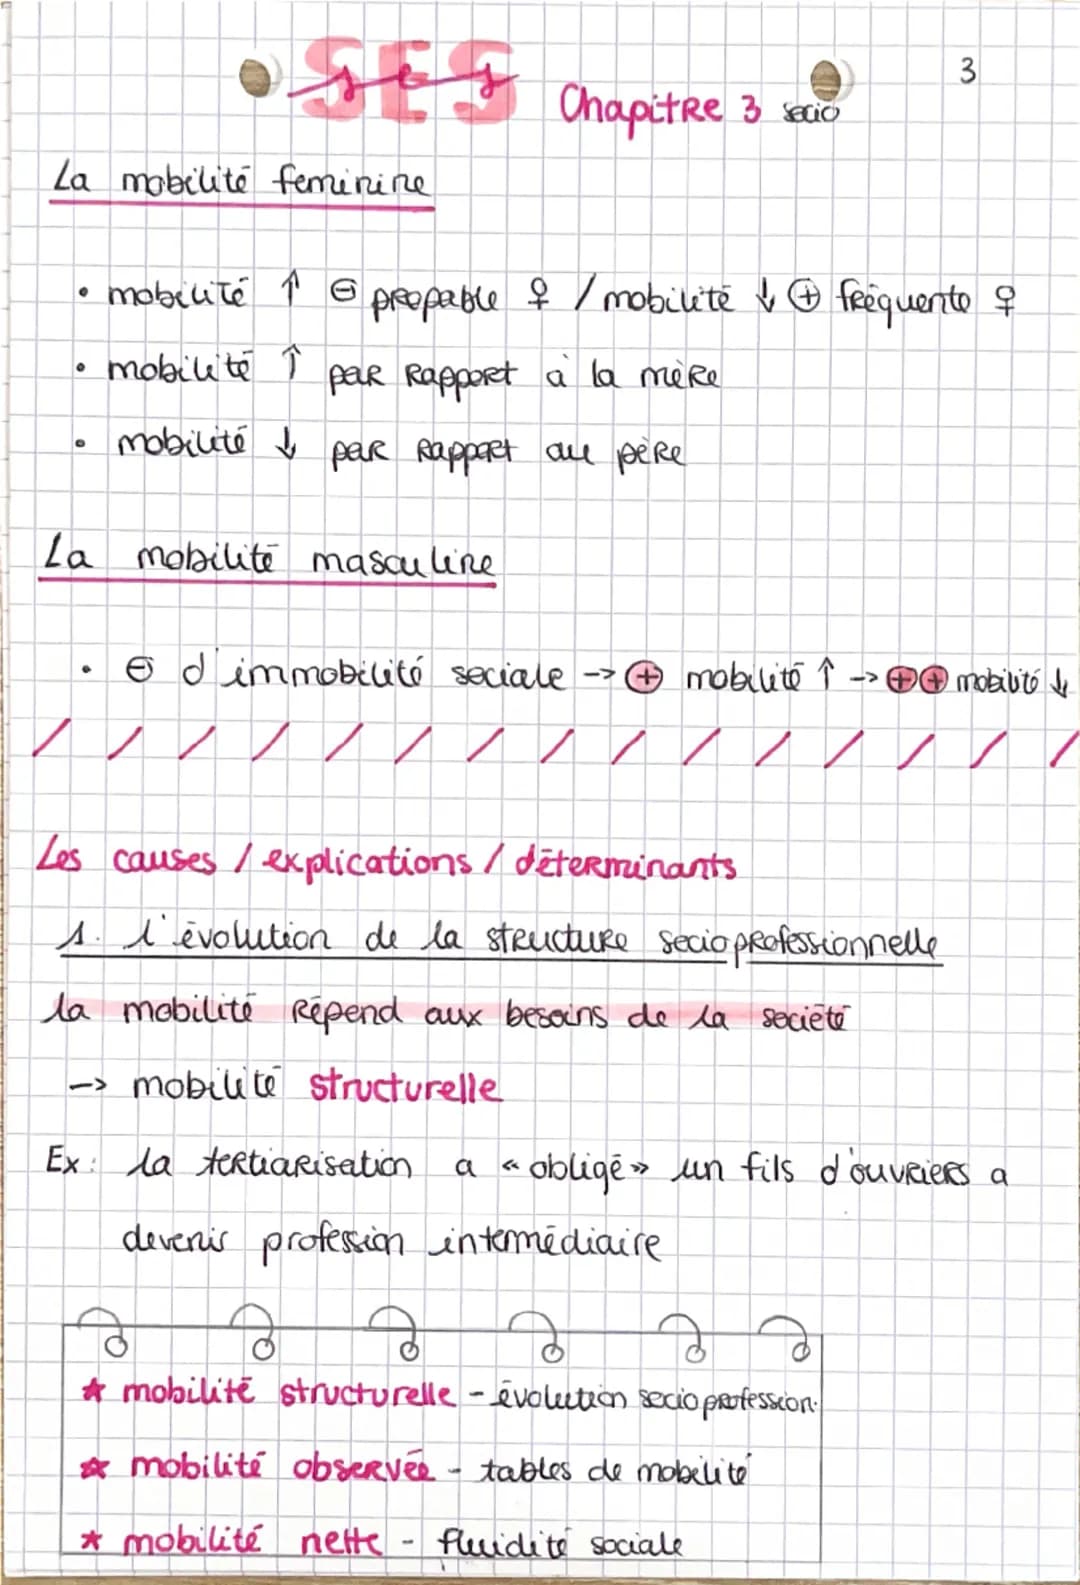 3
SES
ses
Chapitre 3 socio
La mobilité feminine
• mobilité ↑ ⊖ propable ♀ / mobilité ↓ ⊕ fréquente ♀
• mobilité ↑ par rapport à la mère
• mobilité ↓ par rapport au père
La mobilité masculine
• ⊖ d'immobilité sociale -> ⊕ mobilité ↑ -> ⊕⊕ mobilité ↓
Les causes / explications / déterminants
1. l'évolution de la structure socioprofessionnelle
la mobilité répond aux besoins de la société
-> mobilité structurelle
Ex: la tertiarisation a « obligé » un fils d'ouvriers a
devenir profession intermédiaire
☆ mobilité structurelle - évolution socioprofession.
☆ mobilité observée - tables de mobilité
☆ mobilité nette - fluidité sociale